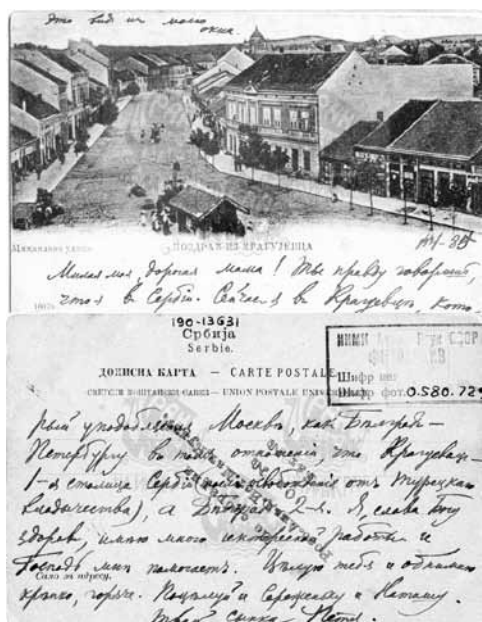 Это вид из моего
окна.
ПОЗДРАВ ИЗ КРАГУЈЕВЦА
Милая моя, дорогая мама! Ты правду говоришь,
что я в Сербіи. Сейчас я в Крагуевце, кото-
190-13631
Србија
Serbie.
ДОПИСНА КАРТА — CARTE POSTALE
СВЕТСКИ ПОШТАНСКИ САВЕЗ — UNION POSTALE UNIVERSELLE
Шифр
Шифр фот. 0.580.729
рый уподобляется Москве, как Белград —
Петербургу в том отношеніи, что Крагуевац —
1-я столица Сербіи (после освобожденія отъ турецкаго
владычества), а Белград 2-я. Я, слава Богу
здоров, имею много интересной работы и
Господь мне помогает. Целую тебя и обнимаю
Само за адресу.
крепко, горячо. Поцелуй и Сереженьку и Наташу.
Твой сынка — Петя.